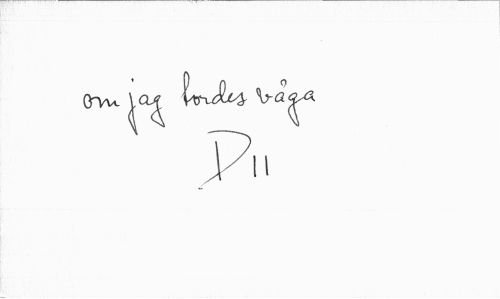 om jag tordes våga
D 11